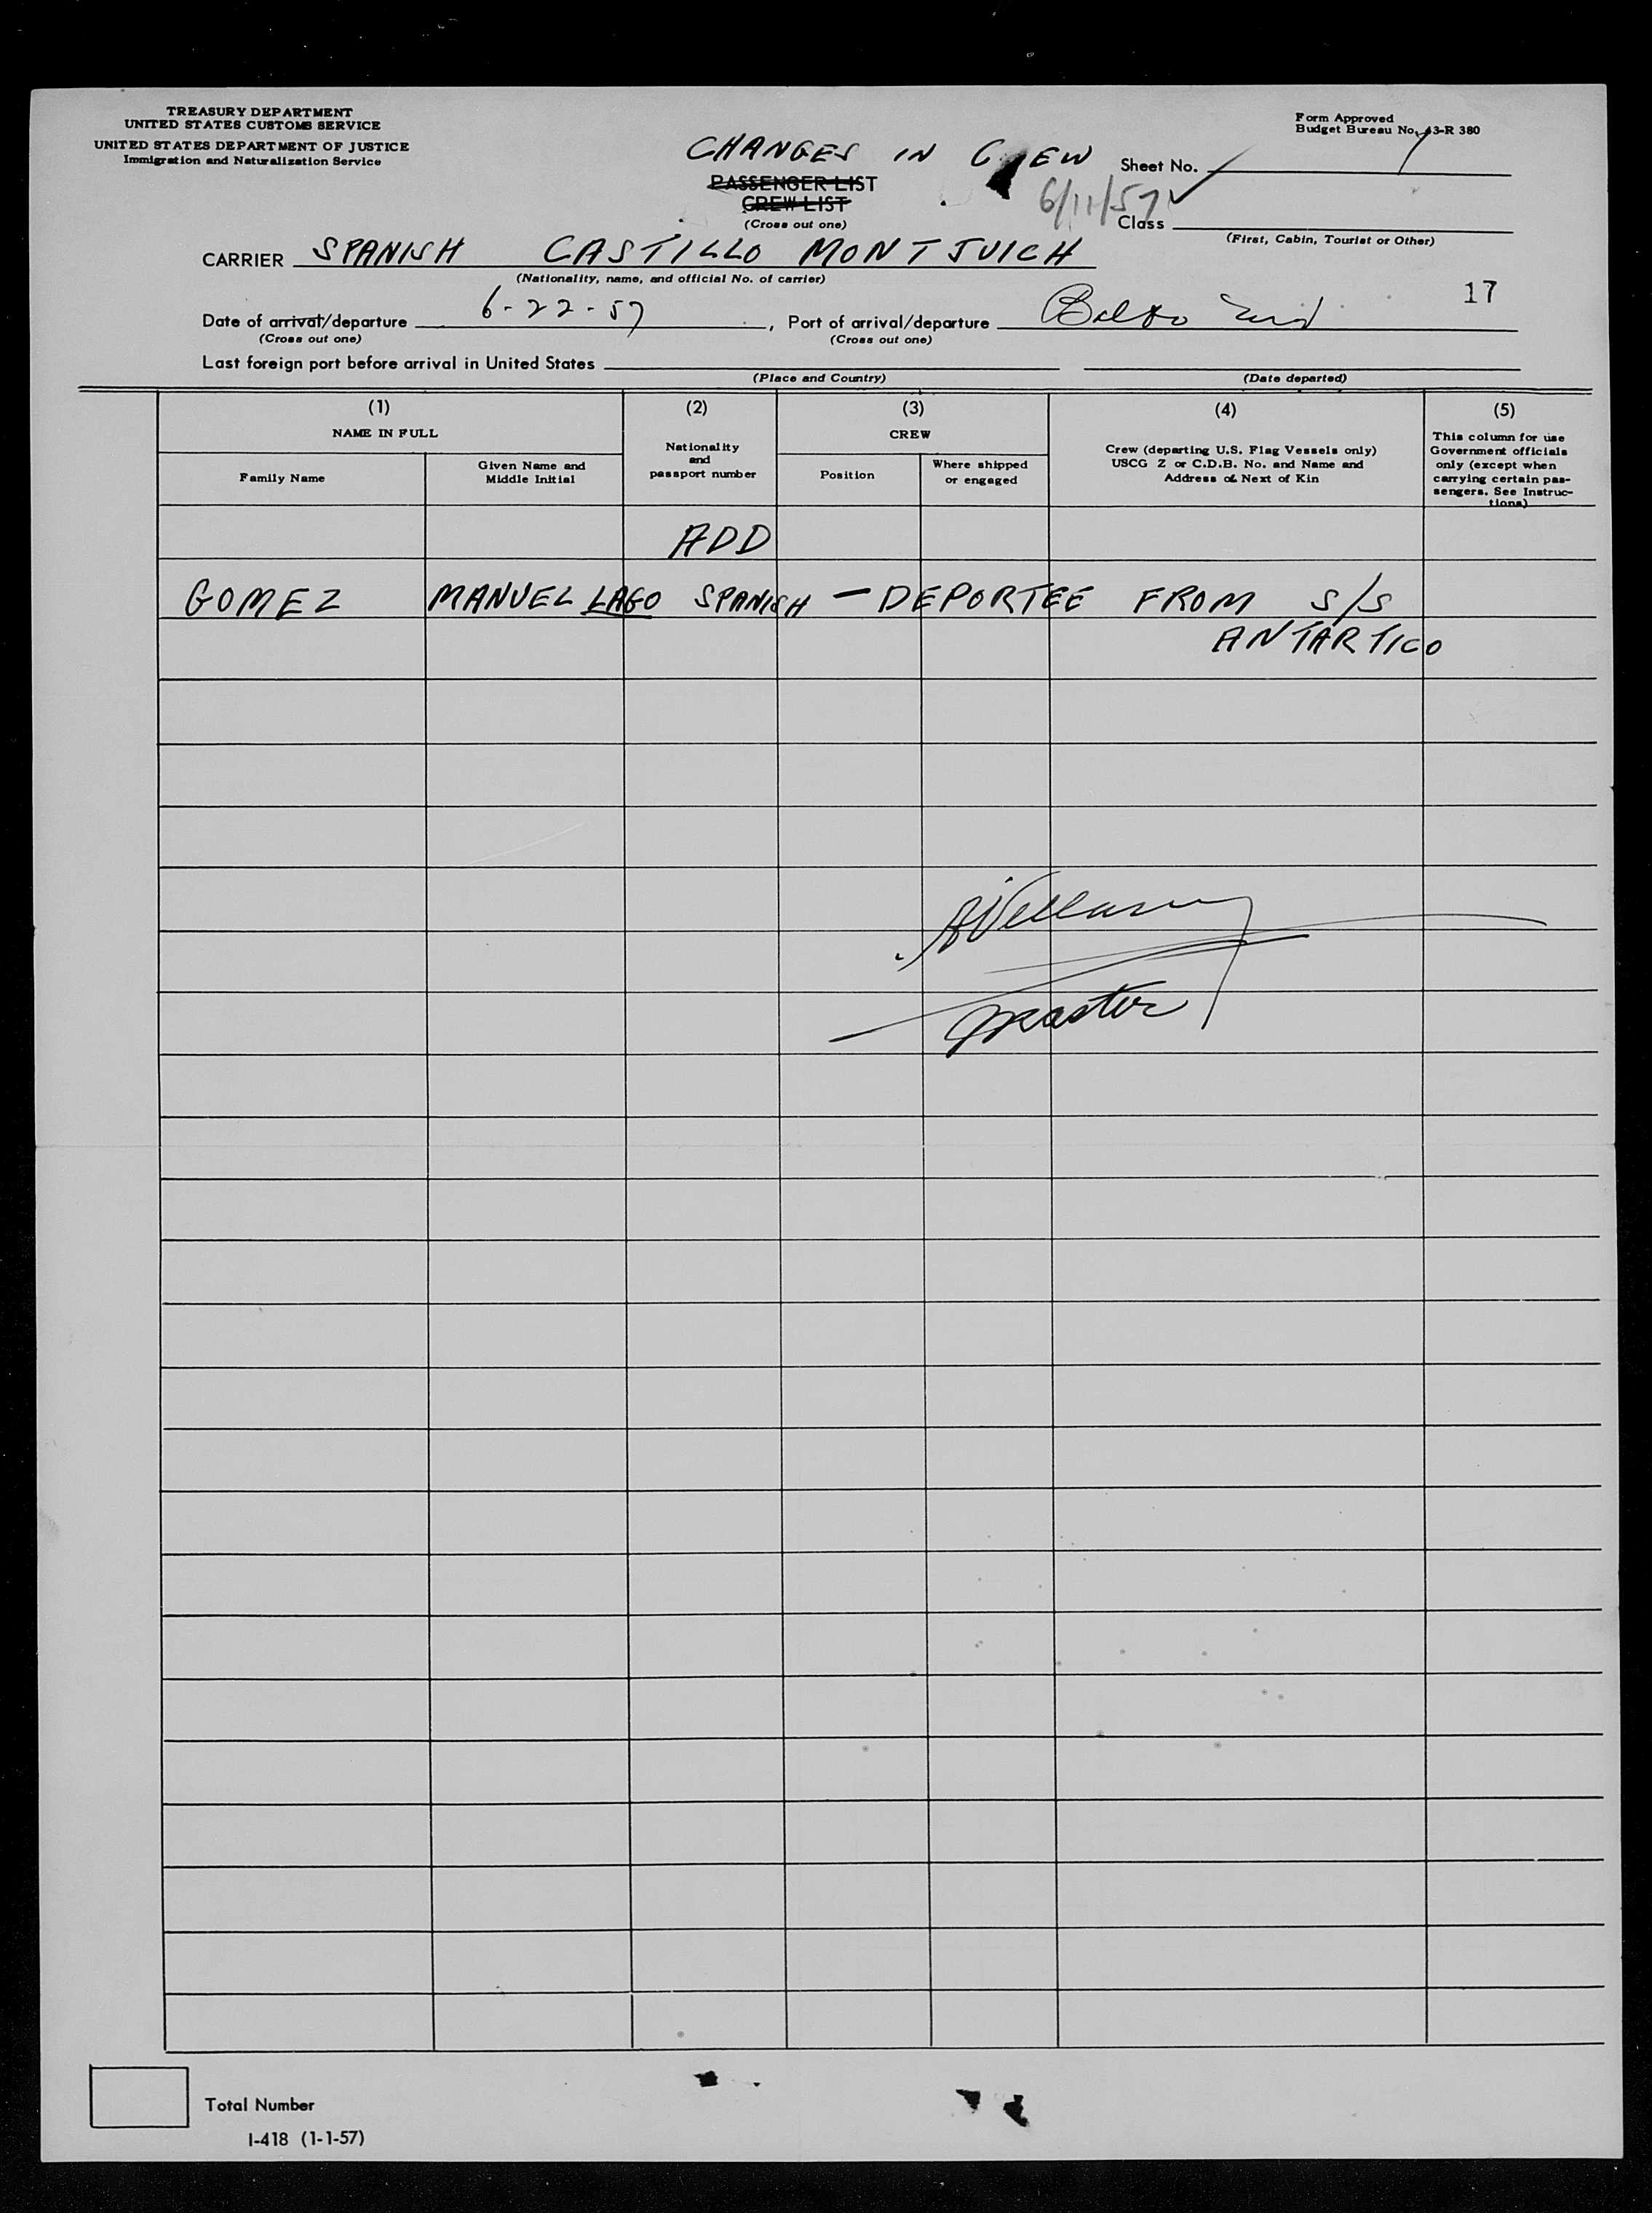 TREASURY DEPARTMENT
UNITED STATES CUSTOMS SERVICE
UNITED STATES DEPARTMENT OF JUSTICE
Immigration and Naturalization Service
Form Approved
Budget Bureau No. 43-R 380
CHANGES IN CREW
Sheet No.
PASSENGER LIST
CREW LIST
(Cross out one)
6/11/57
Class
(First, Cabin, Tourist or Other)
CARRIER SPANISH CASTILLO MONTJUICH
(Nationality, name, and official No. of carrier)
17
Date of arrival/departure 6-22-57, Port of arrival/departure Balto Md
(Cross out one) (Cross out one)
Last foreign port before arrival in United States
(Place and Country) (Date departed)
(1) (2) (3) (4) (5)
NAME IN FULL
Family Name
Given Name and
Middle Initial
Nationality
and
passport number
CREW
Position
Where shipped
or engaged
Crew (departing U.S. Flag Vessels only)
USCG Z or C.D.B. No. and Name and
Address of Next of Kin
This column for use
Government officials
only (except when
carrying certain pas-
sengers. See Instruc-
tions)
ADD
GOMEZ MANUEL LAGO SPANISH — DEPORTEE FROM S/S
ANTARTICO
Master
Total Number
I-418 (1-1-57)